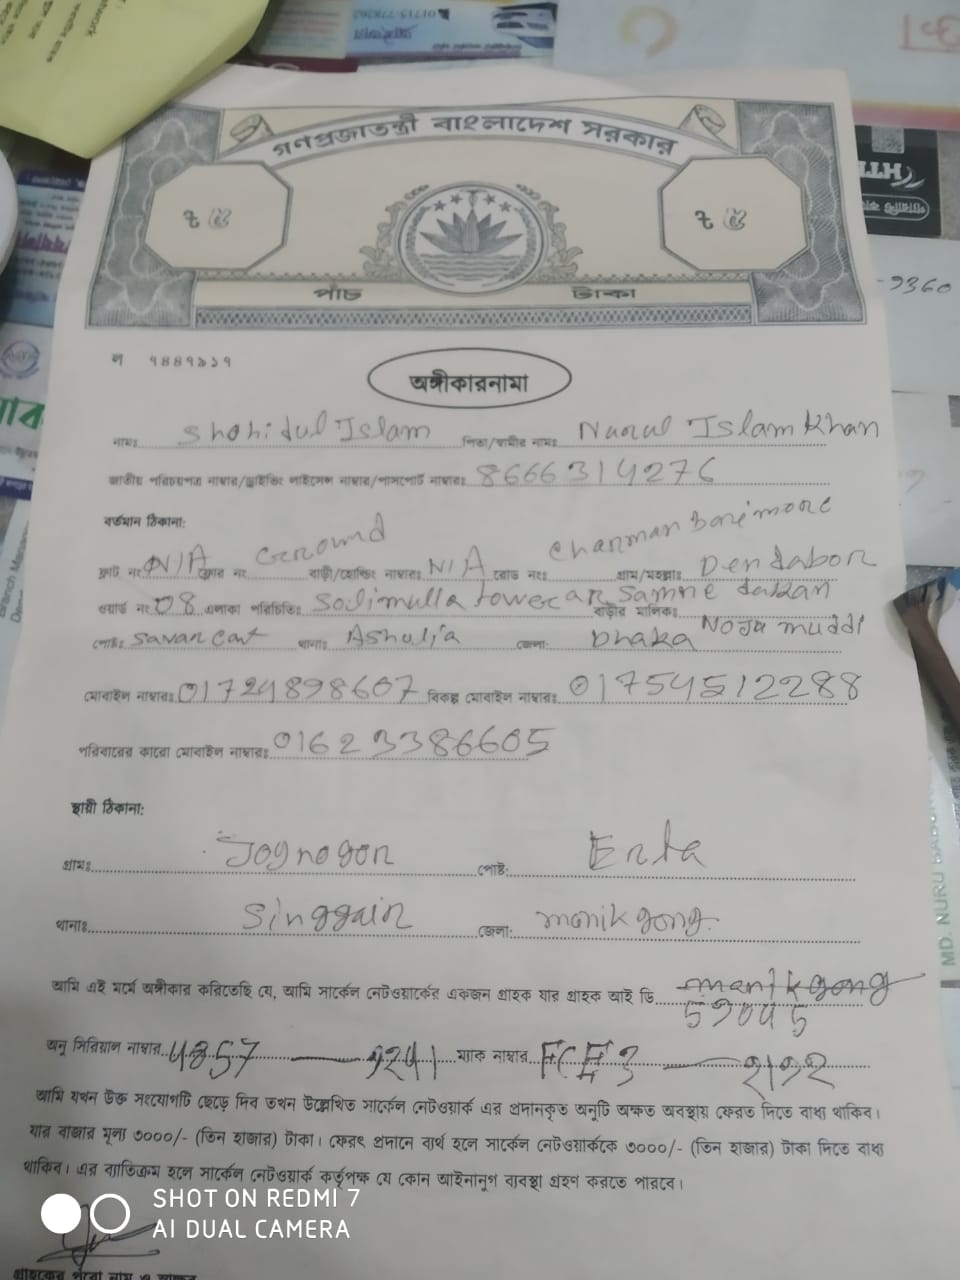 গণপ্রজাতন্ত্রী বাংলাদেশ সরকার
পাঁচ টাকা
অঙ্গীকারনামা
নামঃ Shohidul Islam পিতা/স্বামীর নামঃ Nurul Islam Khan
জাতীয় পরিচয়পত্র নাম্বার/ড্রাইভিং লাইসেন্স নাম্বার/পাসপোর্ট নাম্বারঃ 8666314276
বর্তমান ঠিকানা:
ফ্লাট নং N/A ফ্লোর নং Ground বাড়ী/হোল্ডিং নাম্বারঃ N/A রোড নংঃ গ্রাম/মহল্লাঃ Dendabor
ওয়ার্ড নং 08 এলাকা পরিচিতিঃ Solimulla tower ar samne বাড়ীর মালিকঃ
পোষ্টঃ থানাঃ Ashulia জেলা: Dhaka
মোবাইল নাম্বারঃ 01724898607 বিকল্প মোবাইল নাম্বারঃ 01754512288
পরিবারের কারো মোবাইল নাম্বারঃ 01623386605
স্থায়ী ঠিকানা:
গ্রামঃ Joynogor পোষ্ট:
থানাঃ Singgair জেলা: manikgong
আমি এই মর্মে অঙ্গীকার করিতেছি যে, আমি সার্কেল নেটওয়ার্কের একজন গ্রাহক যার গ্রাহক আই ডি manikgong
অনু সিরিয়াল নাম্বার 4857 ম্যাক নাম্বার
আমি যখন উক্ত সংযোগটি ছেড়ে দিব তখন উল্লেখিত সার্কেল নেটওয়ার্ক এর প্রদানকৃত অনুটি অক্ষত অবস্থায় ফেরত দিতে বাধ্য থাকিব।
যার বাজার মূল্য ৩০০০/- (তিন হাজার) টাকা। ফেরৎ প্রদানে ব্যর্থ হলে সার্কেল নেটওয়ার্ককে ৩০০০/- (তিন হাজার) টাকা দিতে বাধ্য
থাকিব। এর ব্যতিক্রম হলে সার্কেল নেটওয়ার্ক কর্তৃপক্ষ যে কোন আইনানুগ ব্যবস্থা গ্রহণ করতে পারবে।
SHOT ON REDMI 7
AI DUAL CAMERA